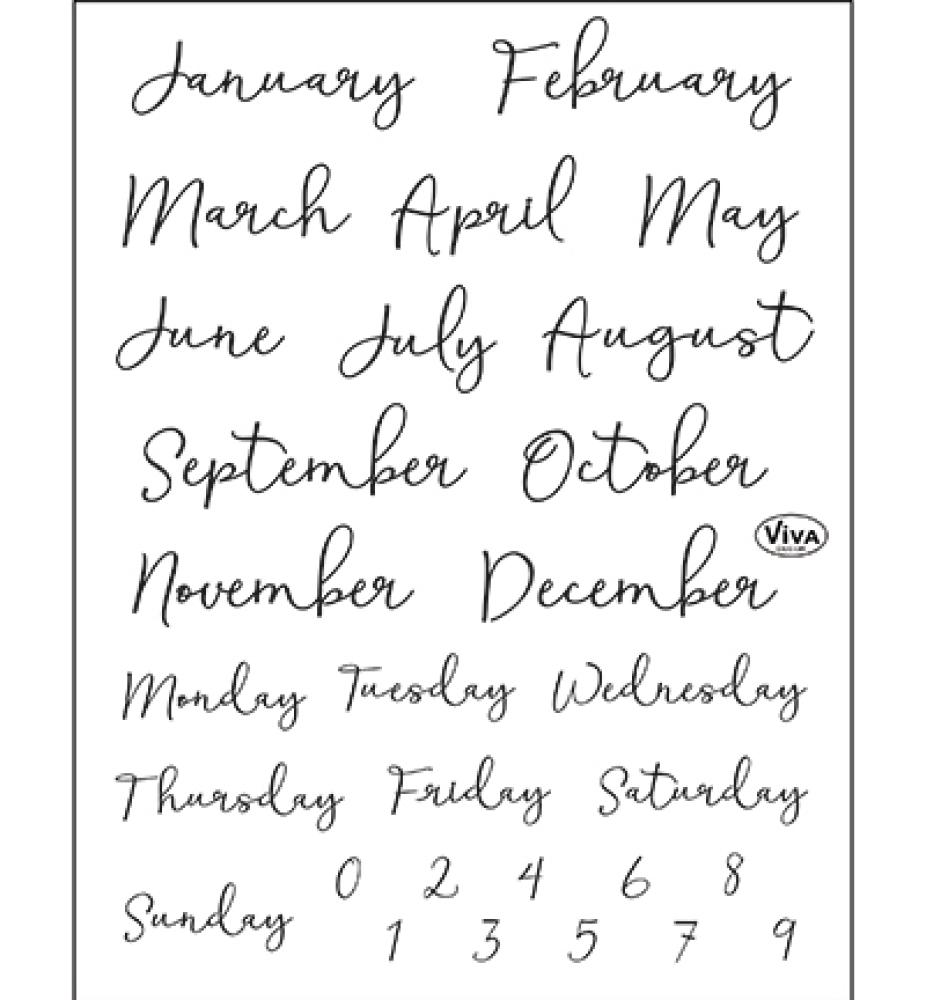 January February
March April May
June July August
September October
ViVA
November December
Monday Tuesday Wednesday
Thursday Friday Saturday
Sunday
0 2 4 6 8
1 3 5 7 9